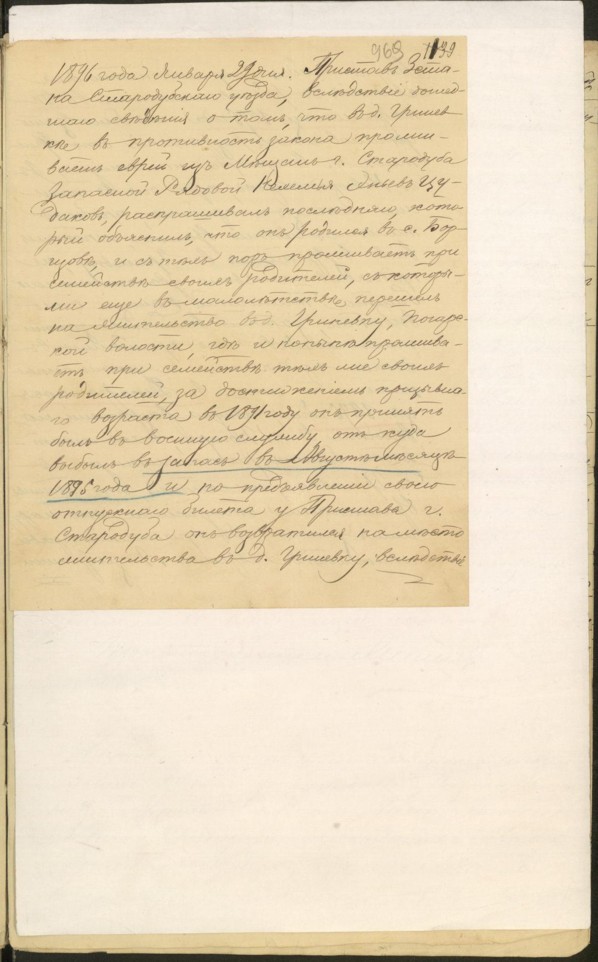 963 1139
1896 года Января 29 дня. Приставъ 3 ста-
на Стародубскаго уѣзда, вслѣдствіе дошед-
шаго свѣденія о томъ, что въ д. Гринев-
кѣ въ противность закона прожи-
ваетъ еврей изъ Мѣщанъ г. Стародуба
запасной Рядовой Цу-
даковъ, распрашивалъ послѣдняго, кото-
рый объяснилъ, что онъ родился въ с. Бор-
щовѣ, и съ тѣхъ поръ проживаетъ при
семействѣ своихъ родителей, съ которы-
ми еще въ малолѣтствѣ перешелъ
на жительство въ д. Гриневку, Погарс-
кой волости, гдѣ и понынѣ прожива-
етъ при семействѣ тѣхъ же своихъ
родителей, за достиженіемъ призывна-
го возраста въ 1891 году онъ принятъ
былъ въ военную службу, отъ куда
выбылъ въ запасъ въ Августѣ мѣсяцѣ
1895 года и по предъявленіи своего
отпускнаго билета у Пристава г.
Стародуба онъ возвратился на мѣсто
жительства въ д. Гриневку, вслѣдствіе